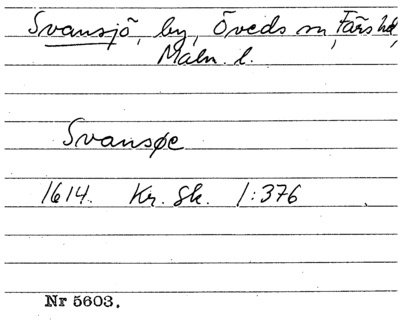 Svansjö, by, Öveds sn, Färs hd,
Malm. l.
Svansøe
1614. Kr. Sk. 1:376.
Nr 5603.